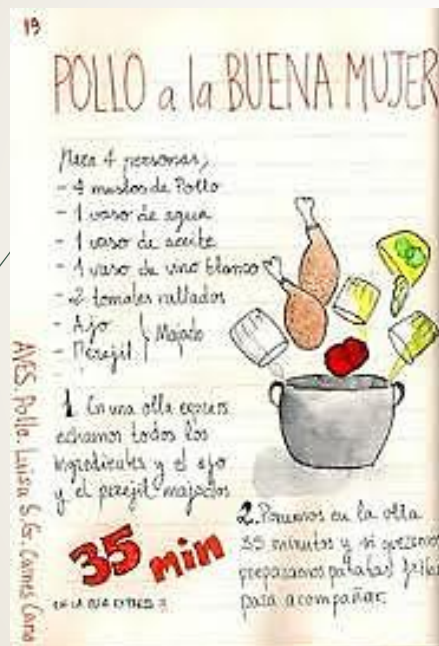 19
POLLO a la BUENA MUJER
Para 4 personas,
- 4 muslos de Pollo
- 1 vaso de agua
- 1 vaso de aceite
- 1 vaso de vino blanco
- 2 tomates rallados
- Ajo
- Perejil } Majado
1 En una olla express
echamos todos los
ingredientes y el ajo
y el perejil majados
35 min
2. Ponemos en la olla
35 minutos y si queremos
preparamos patatas fritas
para acompañar.
AVES. Pollo. Luisa S.G. Carnes